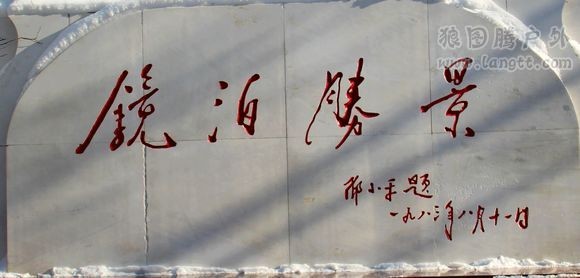 狼图腾户外
www.langtt.com
镜泊胜景
邓小平题
一九八三年八月十一日